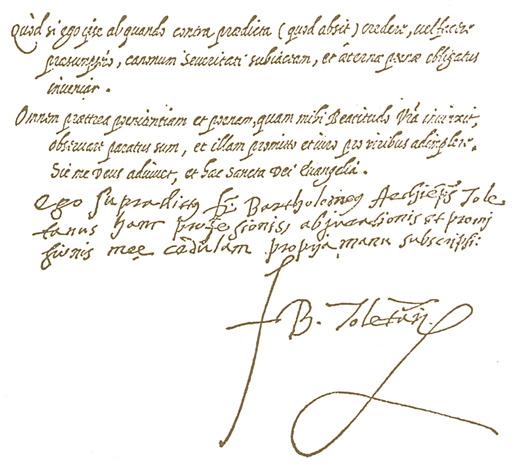 Quòd si ego ipse aliquando contra prædicta (quod absit) credere, vel facere
præsumpsero, canonum severitati subiaceam, et æternæ pœnæ obligatus
inveniar.
Omnem prætterea pœnitentiam et pœnam, quam mihi Beatitudo Vra iniunxit,
observare paratus sum, et illam promitto et iuro pro viribus adimplere.
Sic me Deus adiuvet, et hæc sancta Dei Evangelia.
ego supradictꝰ fr. Bartholomeꝰ Archiepꝰ Tole
tanus hanc professionis, abjurationis et promi
sionis meę cedulam propria manu subscripsi:
f B. Toletan.